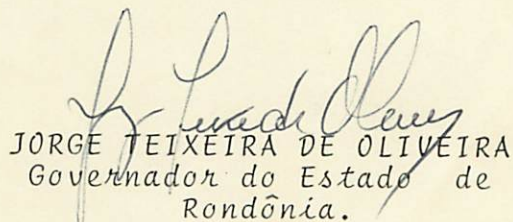 JORGE TEIXEIRA DE OLIVEIRA
Governador do Estado de
Rondônia.